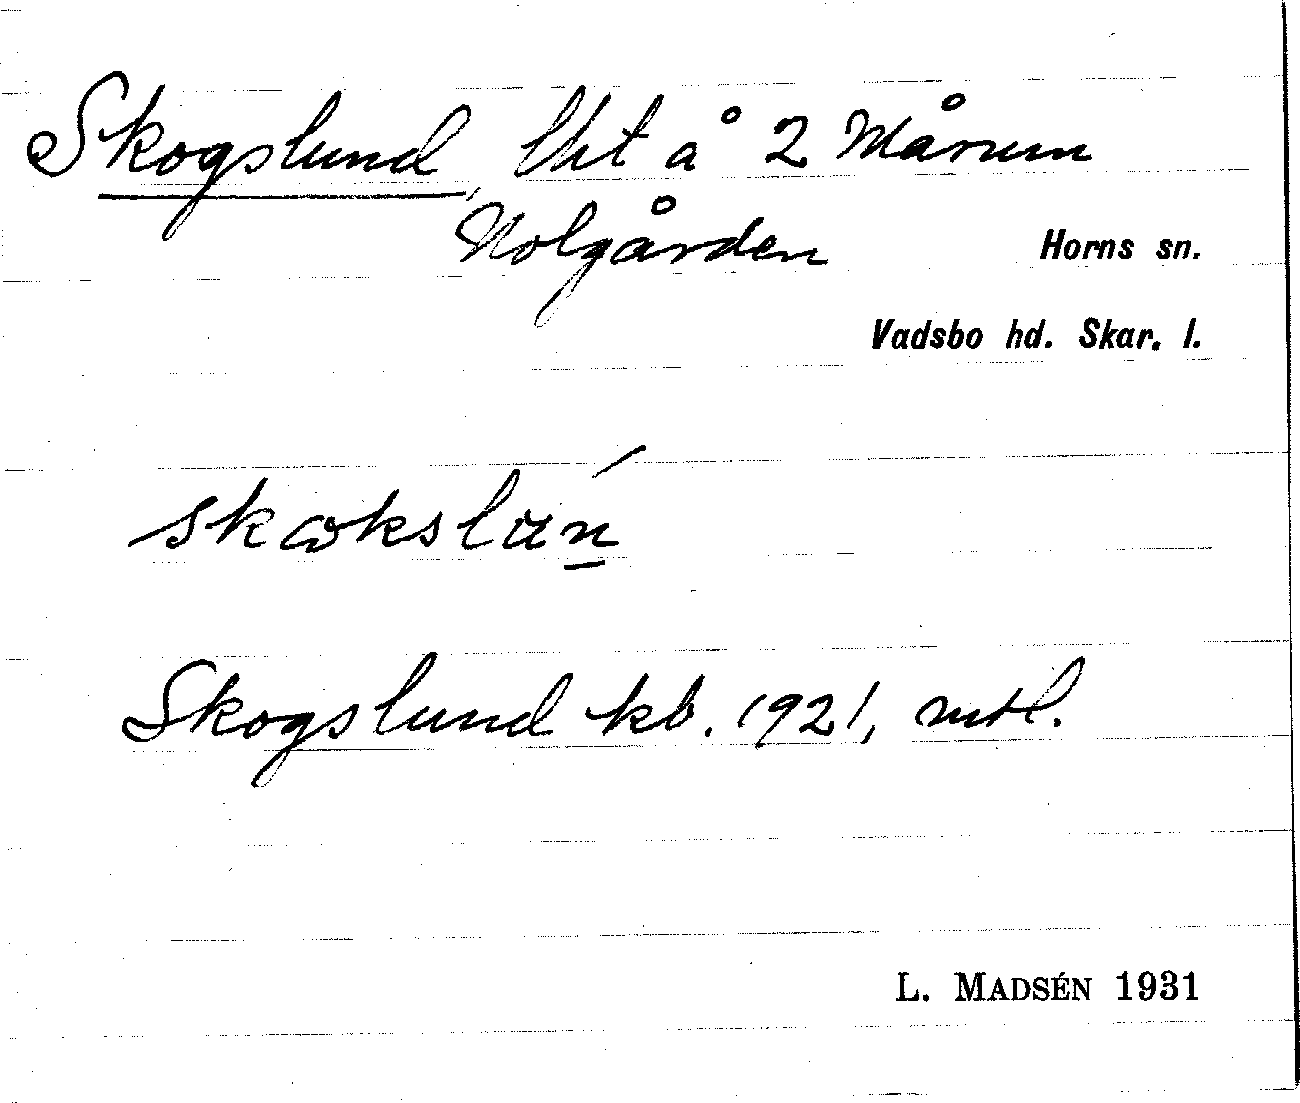 Skogslund, lht å 2 Mårum
Nolgården
Horns sn.
Vadsbo hd. Skar. l.
Skogslund kb. 1921, mtl.
L. MADSÉN 1931